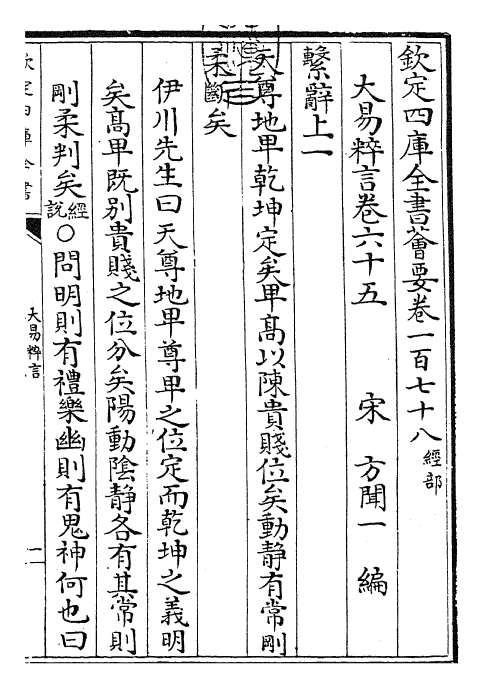 欽定四庫全書薈要卷一百七十八經部
大易粹言卷六十五　宋　方聞一　編
繫辭上一
天尊地卑乾坤定矣卑高以陳貴賤位矣動靜有常剛
柔斷矣
伊川先生曰天尊地卑尊卑之位定而乾坤之義明
矣高卑既别貴賤之位分矣陽動陰静各有其常則
剛柔判矣經說○問明則有禮樂幽則有鬼神何也曰
欽定四庫全書
大易粹言
一